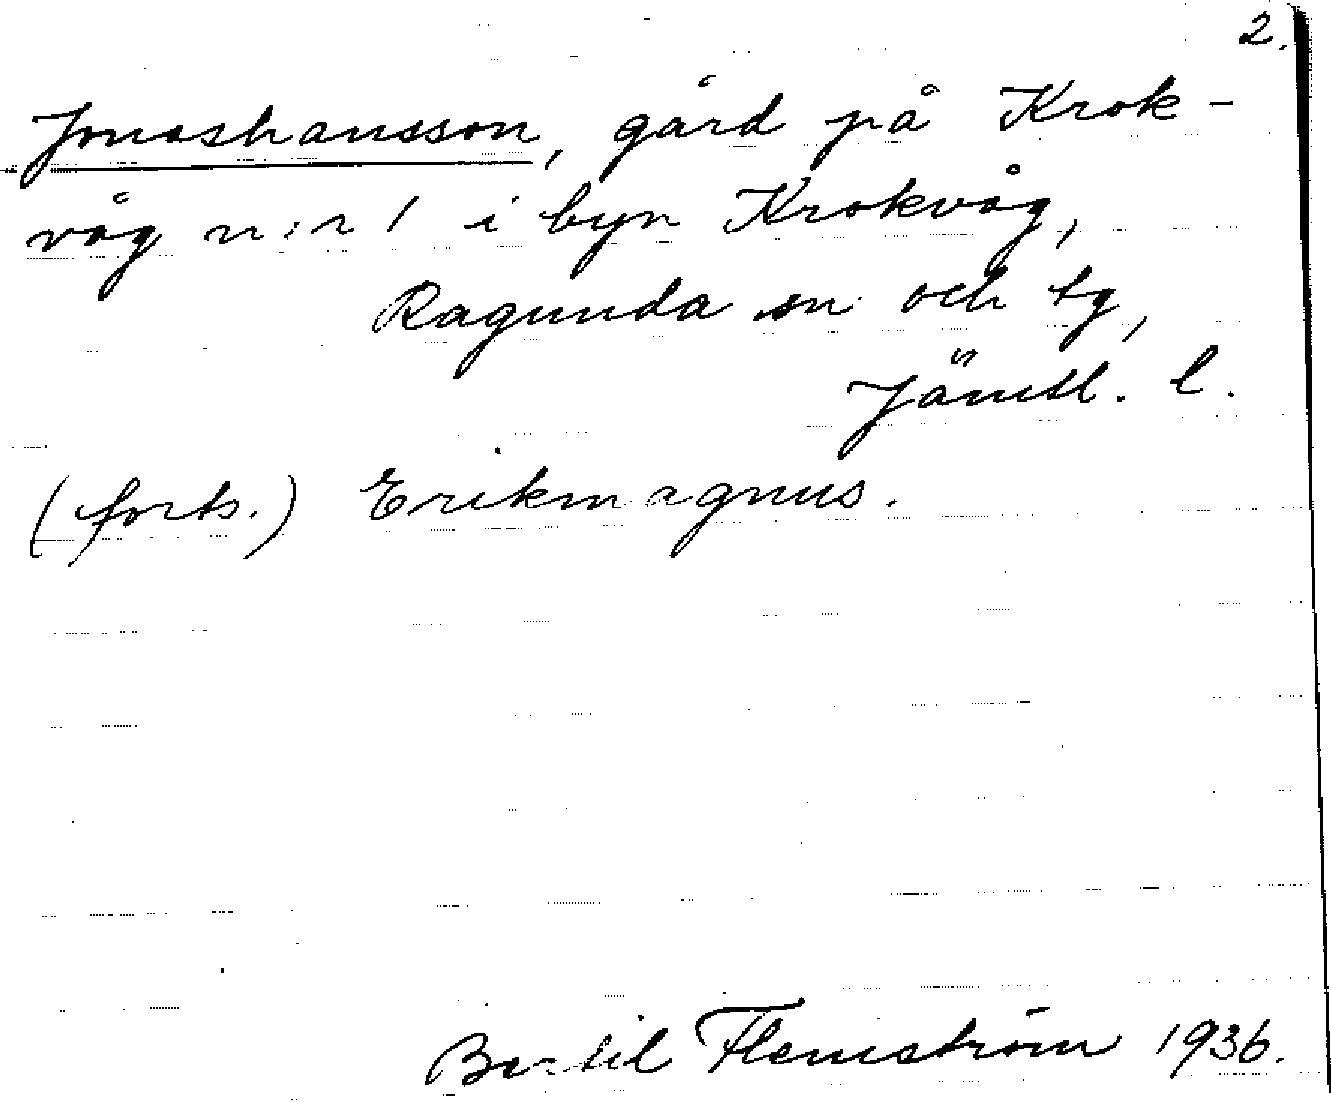 2.
Jonashansson, gård på Krok-
våg n:r 1 i byn Krokvåg,
Ragunda sn och tg,
Jämtl. l.
(forts.) Erikmagnus.
Bertil Flemström 1936.